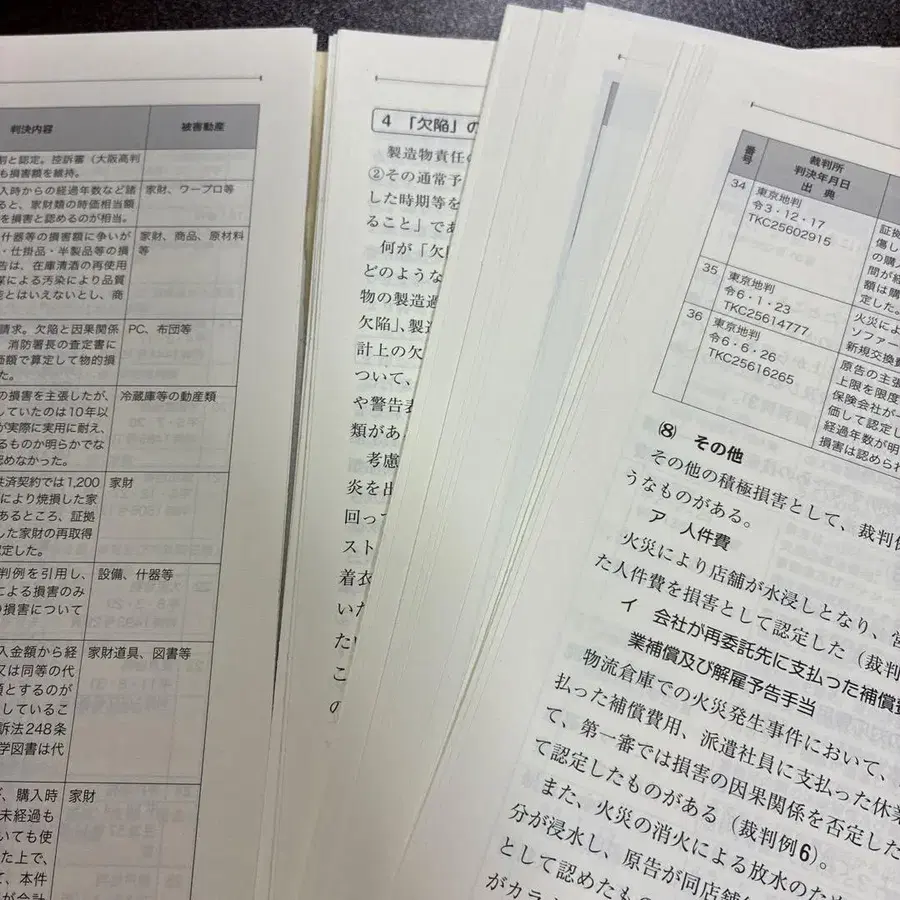 判決内容 被害動産
割と認定。控訴審（大阪高判
も損害額を維持。
入時からの経過年数など諸 家財、ワープロ等
ると、家財類の時価相当額
を損害と認めるのが相当。
什器等の損害額に争いが 家財、商品、原材料
・仕掛品・半製品等の損 等
告は、在庫清酒の再使用
煤による汚染により品質
能とはいえないとし、商
請求。欠陥と因果関係 PC、布団等
消防署長の査定書に
価額で算定して物的損
た。
の損害を主張したが、 冷蔵庫等の動産類
していたのは10年以
が実際に実用に耐え、
るものか明らかでな
認めなかった。
共済契約では1,200 家財
により焼損した家
あるところ、証拠
した家財の再取得
定した。
判例を引用し、 設備、什器等
による損害のみ
の損害について
入金額から経 家財道具、図書等
又は同等の代
額とするのが
しているこ
訴法248条
学図書は代
、購入時 家財
未経過も
いても使
た上で、
て、本件
4 「欠陥」の
製造物責任の
②その通常予
した時期等を
ること」であ
何が「欠陥
どのような
物の製造過
欠陥」、製造
計上の欠
ついて、
や警告表
類があ
考慮
炎を出
回って
スト
着衣
いた
た
こ
の
番号 裁判所
判決年月日
出典
34 東京地判
令3・12・17
TKC25602915
証拠
傷し
の購入
間が経
額は購
定した。
35 東京地判
令6・1・23
TKC25614777
火災によ
ソファー
新規交換費
36 東京地判
令6・6・26
TKC25616265
原告の主張
上限を限度
保険会社が
価して認定し
経過年数が明
損害は認めら
⑻ その他
その他の積極損害として、裁判例
うなものがある。
ア 人件費
火災により店舗が水浸しとなり、営
た人件費を損害として認定した（裁判
イ 会社が再委託先に支払った補償費
業補償及び解雇予告手当
物流倉庫での火災発生事件において、
払った補償費用、派遣社員に支払った休業
て、第一審では損害の因果関係を否定した
て認定したものがある（裁判例6）。
また、火災の消火による放水のため
分が浸水し、原告が同店舗
として認めたもの
がカラ